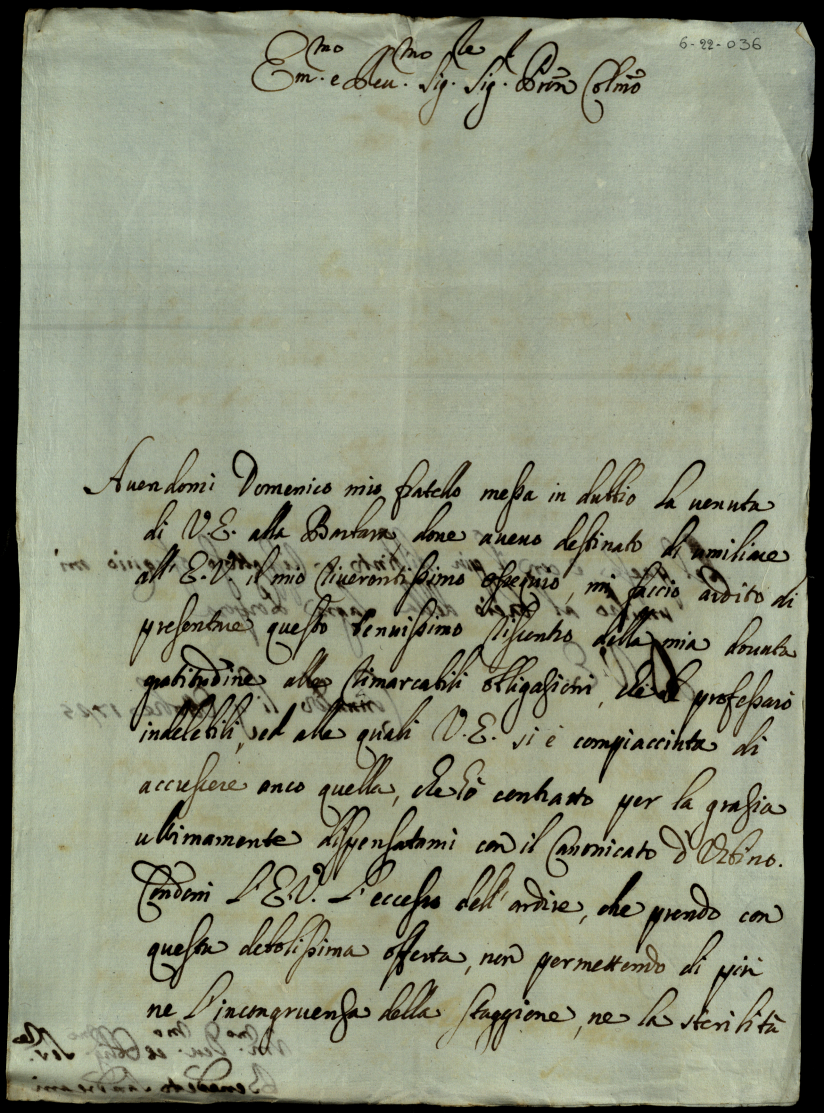 6-22-036
Em.mo e Reu.mo Sig.le Sig.l Pron Colmo
Auendomi Domenico mio fratello messa in dubbio la uenuta
di V.E. alla Barbara doue aueuo destinato di umiliare
all' E.V. il mio riuerentissimo ossequio, mi faccio ardito di
presentare questo tenuissimo riscontro della mia douuta
gratitudine alle rimarcabili obligazioni, che le professarò
indelebili, ed alle quali V.E. si è compiacciuta di
accrescere anco quella, che hò contratto per la grazia
ultimamente dispensatami con il Canonicato d'Urbino.
Condoni l'E.V. l'eccesso dell'ardire, che prendo con
questa debolissima offerta, non permettendo di più
ne l'incongruenza della staggione, ne la sterilità